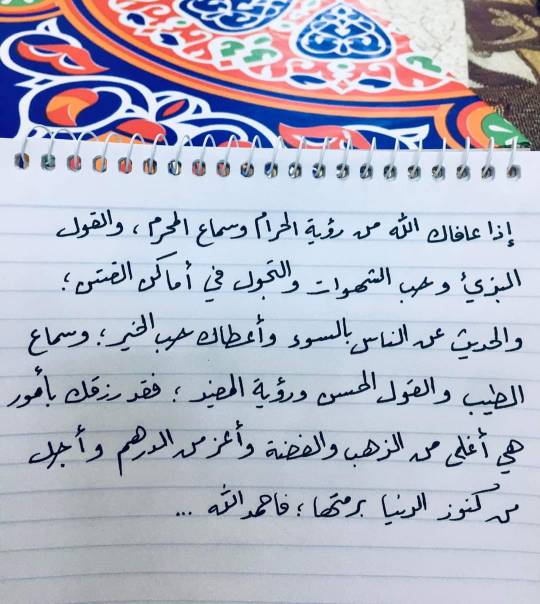 إذا عافاك الله من رؤية الحرام وسماع المحرم ، والقول
البذيئ وحب الشهوات والتجول في أماكن الفتن ؛
والحديث عن الناس بالسوء وأعطاك حب الخير ؛ وسماع
الطيب والقول الحسن ورؤية المفيد ؛ فقد رزقك بأمور
هي أغلى من الذهب والفضة وأعز من الدرهم وأجل
من كنوز الدنيا برمتها ؛ فاحمد الله ...